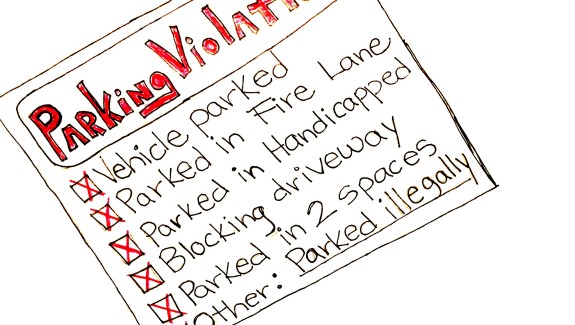 Parking Violati
Vehicle parked
Parked in Fire Lane
Parked in Handicapped
Blocking driveway
Parked in 2 spaces
Other: Parked illegally